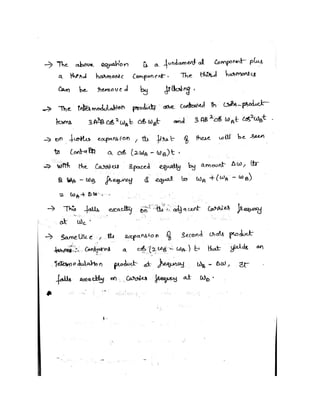 → The above equation is a fundamental component plus
a third harmonic component. The third harmonics
can be removed by filtering.
→ The Intermodulation products are contained in cross-product
terms 3A²B cos²ωAt cos ωBt and 3AB² cos ωAt cos²ωBt.
→ on further expansion, the first of these will be seen
to contain a cos (2ωA - ωB)t.
→ with the carriers spaced equally by amount Δω, the
2ωA - ωB frequency is equal to ωA + (ωA - ωB)
= ωA + Δω.
→ This falls exactly on the adjacent carrier frequency
at ωc.
→ Same like, the expansion of second cross product
contains a cos (2ωB - ωA)t that yields an
intermodulation product at frequency ωB - Δω, It
falls exactly on carrier frequency at ωD.